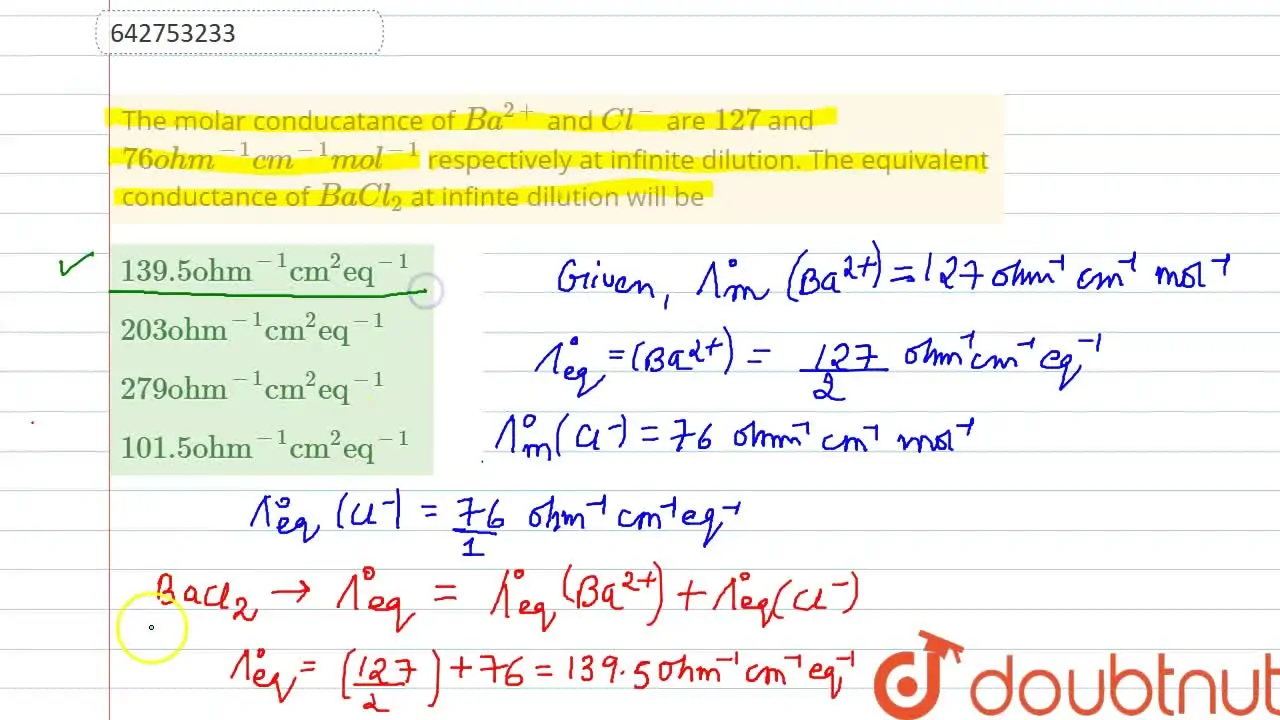 642753233
The molar conducatance of Ba²⁺ and Cl⁻ are 127 and
76ohm⁻¹cm⁻¹mol⁻¹ respectively at infinite dilution. The equivalent
conductance of BaCl₂ at infinte dilution will be
139.5ohm⁻¹cm²eq⁻¹
203ohm⁻¹cm²eq⁻¹
279ohm⁻¹cm²eq⁻¹
101.5ohm⁻¹cm²eq⁻¹
Given, Λ°m (Ba²⁺) = 127 ohm⁻¹ cm⁻¹ mol⁻¹
Λ°eq = (Ba²⁺) = 127/2 ohm⁻¹cm⁻¹eq⁻¹
Λ°m (Cl⁻) = 76 ohm⁻¹ cm⁻¹ mol⁻¹
Λ°eq (Cl⁻) = 76/1 ohm⁻¹ cm⁻¹eq⁻¹
BaCl₂ → Λ°eq = Λ°eq (Ba²⁺) + Λ°eq (Cl⁻)
Λ°eq = (127/2) + 76 = 139.5 ohm⁻¹ cm⁻¹ eq⁻¹
doubtnut